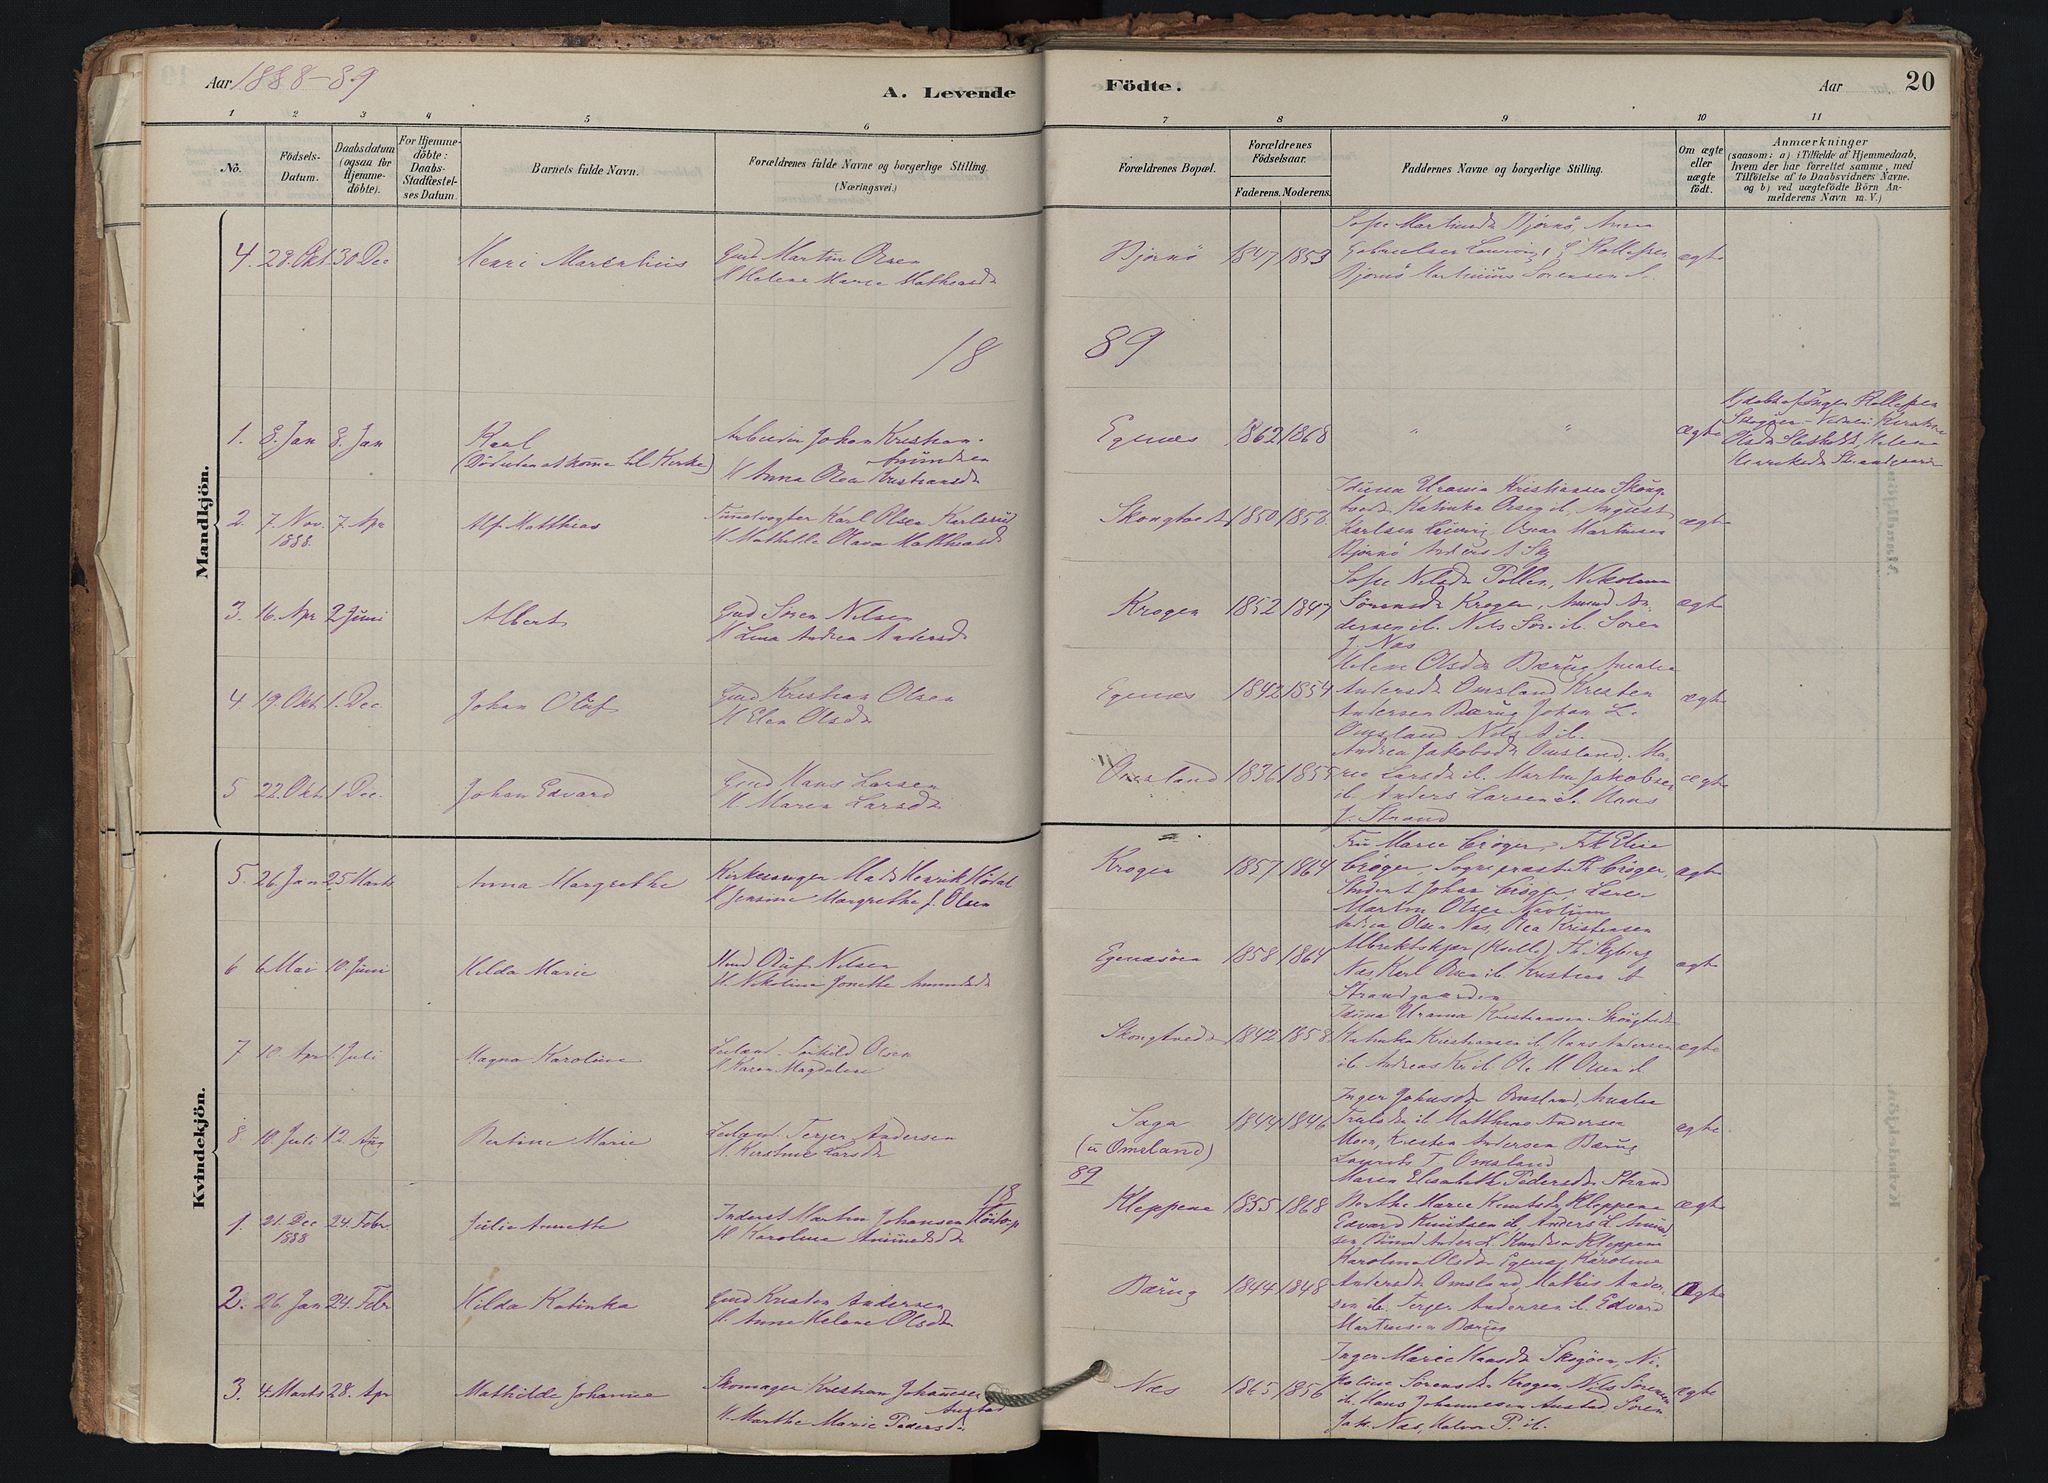 Aar 1888-89
A. Levende
Födte.
Aar
20
1 2 3 4 5 6 7 8 9 10 11
No.
Födsels-
Datum.
Daabsdatum
(ogsaa for
Hjemme-
döbte).
For Hjemme-
döbte:
Daabs-
Stadfæstel-
ses Datum.
Barnets fulde Navn.
Forældrenes fulde Navne og borgerlige Stilling.
(Næringsvei.)
Forældrenes Bopæl.
Forældrenes
Födselsaar.
Faderens. Moderens.
Faddernes Navne og borgerlige Stilling.
Om ægte
eller
uægte
födt.
Anmærkninger
(saasom: a) i Tilfælde af Hjemmedaab,
hvem der har forrettet samme, med
Tilföielse af to Daabsvidners Navne.
og b) ved uægtefödte Börn An-
melderens Navn m. V.)
Mandkjön.
4. 28. Okt 30 Dec Henri Marentius
Gmd Martin Olsen
H Helene Marie Mathiasd
Bjørnø 1847 1853
Sofie Martinsd Bjørnø, Anna
Gabrielsen
Bjørnø Martinius Sørensen ib.
ægte
18 89
1. 8. Jan 8. Jan Karl
(Død uden at komme til Kirke)
Arbeider Johan Kristian
Amundsen
H Anna Olea Kristiansd
Egenæs 1862 1868 " " ægte
Olsd Helene
2. 7. Nov. 1888. 7. Apr Alf Matthias
Karl Olsen
H Mathilde Olava Matthiasd
Skongtvedt 1850 1850
Iduna Urania Kristiansen Skong-
tvedt Katinka ib, August
Karlsen Oscar Martinsen
Bjørnø Anders
ægte
3 16. Apr 2 Juni Albert
Gmd Søren Nilsen
H Lina Andrea Andersd
Krogen 1852 1847
Sofie Nilsd Nikoline
Sørensd Krogen, Amund An-
dersen ib. Nils Sør. ib. Søren
J. Næs
ægte
4 19. Okt 1. Dec. Johan Oluf
Gmd Kristian Olsen
H Elen Olsd
Egenæs 1842 1854
Helene Olsd Bærug Amalie
Andersd Omsland Kristen
Andersen Bærug Johan L.
Omsland Nils A ib.
ægte
5 22. Okt 1 Dec. Johan Edvard
Gmd Hans Larsen
H Maren Larsd
Omsland 1836 1855
Andrea Jakobsd Omsland, Ma-
rie Larsd ib. Martin Jakobsen
ib. Anders Larsen ib. Hans
J. Strand
ægte
Kvindekjön.
5. 26. Jan 25 Marts Anna Margrethe
Kirkesanger Mads Henrik
H Jensine Margrethe J. Olsen
Krogen 1857 1864
Fru Marie Crøger, Frk Elise
Crøger, Sogneprest Th Crøger,
Student Johan Crøger, Lare
Martin Olsen
ægte
6 6 Mai 10. Juni Hilda Marie
Oluf Nilsen
H. Nikoline Jonette Amundsd
Egenæsøen 1858 1864
Andrea Olsen Næs, Olea Kristensen
Næs Karl Olsen ib Kristian A
Strandgaarden
ægte
7 10. Apr 1 Juli Magna Karoline
Leilænd. Torkild Olsen
H Karen Magdalene
Skongtvedt 1842 1858
Iduna Urania Kristiansen Skongtvedt
Katinka Kristiansen ib, Hans Andersen
ib. Andreas Kr ib Ole M Olsen ib
ægte
8. 10. Juli 12. Aug Bertine Marie
Leilænd. Terjer Andersen
H. Kirstine Larsd
Saga
(u Omsland) 1844 1846
Inger Johnsd Omsland, Amalie
Trulsd ib Matthias Andersen
Moen, Kristen Andersen Bærug
Laurits T. Omsland
ægte
18 89
1. 21. Dec 1888 24. Febr. Julie Annette
Inderst Martin Johansen
H Karoline Amundsd
Kleppene 1855 1868
Maren Elisabeth Pedersd Strand
Berthe Marie Knutsd Kleppene
Edvard Knutsen ib, Anders L. Amund-
sen Anders L. Knutsen Kleppene
ægte
2. 26. Jan 24. Febr Hilda Katinka
Gmd Kristen Andersen
H. Anne Helene Olsd
Bærug 1844 1848
Karolina Olsd Egenæs Karoline
Andersd Omsland, Mathis Ander-
sen ib. Terjer Andersen ib. Edvard
Martinsen Bærug
ægte
3. 4. Marts 28. Apr Mathilde Johanne
Skomager Kristian Johannesen
Anstad
H. Marthe Marie Pedersd.
Næs 1865 1856
Inger Marie Hansd Skogøen, Ni-
koline Sørensd Krogen, Nils Sørensen
ib. Hans Johannesen Anstad Søren
Jak. Næs, Halvor P. ib.
ægte